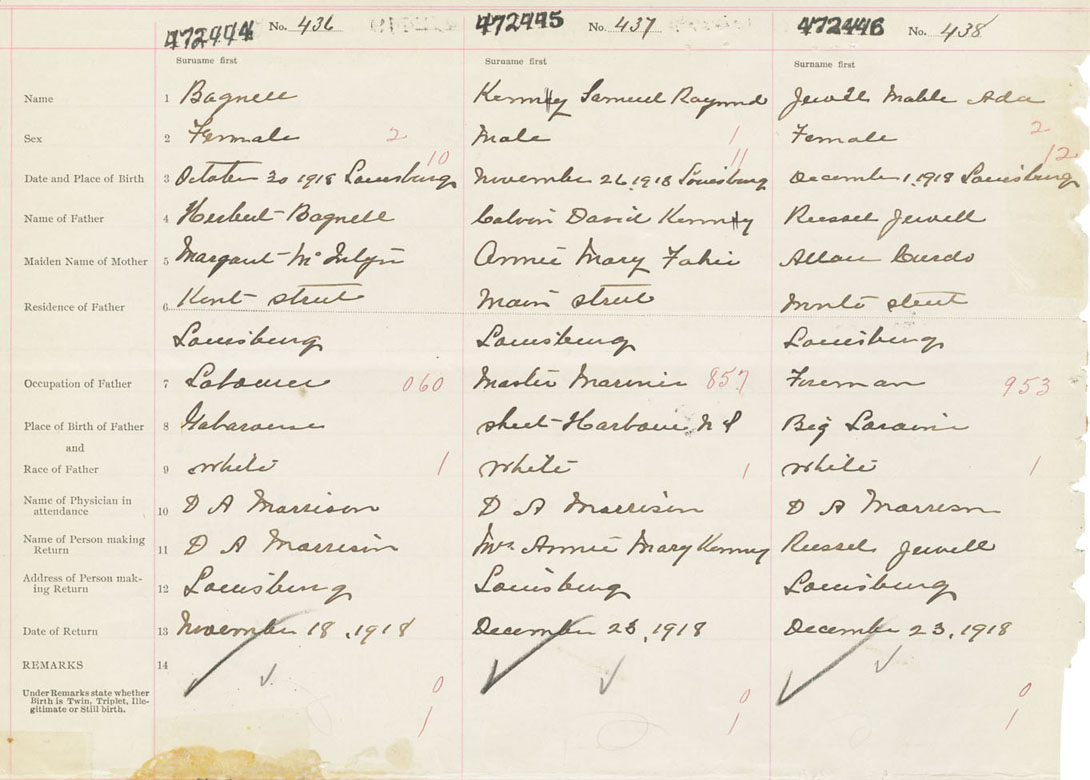 472444 No. 436 472445 No. 437 472446 No. 438
Surname first Surname first Surname first
Name 1 Bagnell Kenney Samuel Raymond Jewell Mable Ada
Sex 2 Female 2 Male 1 Female 2
10 11 12
Date and Place of Birth 3 October 30 1918 Louisburg November 26, 1918 Louisburg December 1, 1918 Louisburg
Name of Father 4 Herbert Bagnell Calvin David Kenney Russel Jewell
Maiden Name of Mother 5 Margaret Annie Mary Fahie
Residence of Father 6 Kent street Main street street
Louisburg Louisburg Louisburg
Occupation of Father 7 Labourer 060 Master Mariner 857 Foreman 953
Place of Birth of Father 8 Gabarouse sheet Harbour N S Big Loraine
and
Race of Father 9 white 1 white 1 white 1
Name of Physician in
attendance 10 D A Morrison D A Morrison D A Morrison
Name of Person making
Return 11 D A Morrison Mrs Annie Mary Kenney Russel Jewell
Address of Person mak-
ing Return 12 Louisburg Louisburg Louisburg
Date of Return 13 November 18, 1918 December 23, 1918 December 23, 1918
REMARKS 14
Under Remarks state whether 0 0 0
Birth is Twin, Triplet, Ille-
gitimate or Still birth. 1 1 1